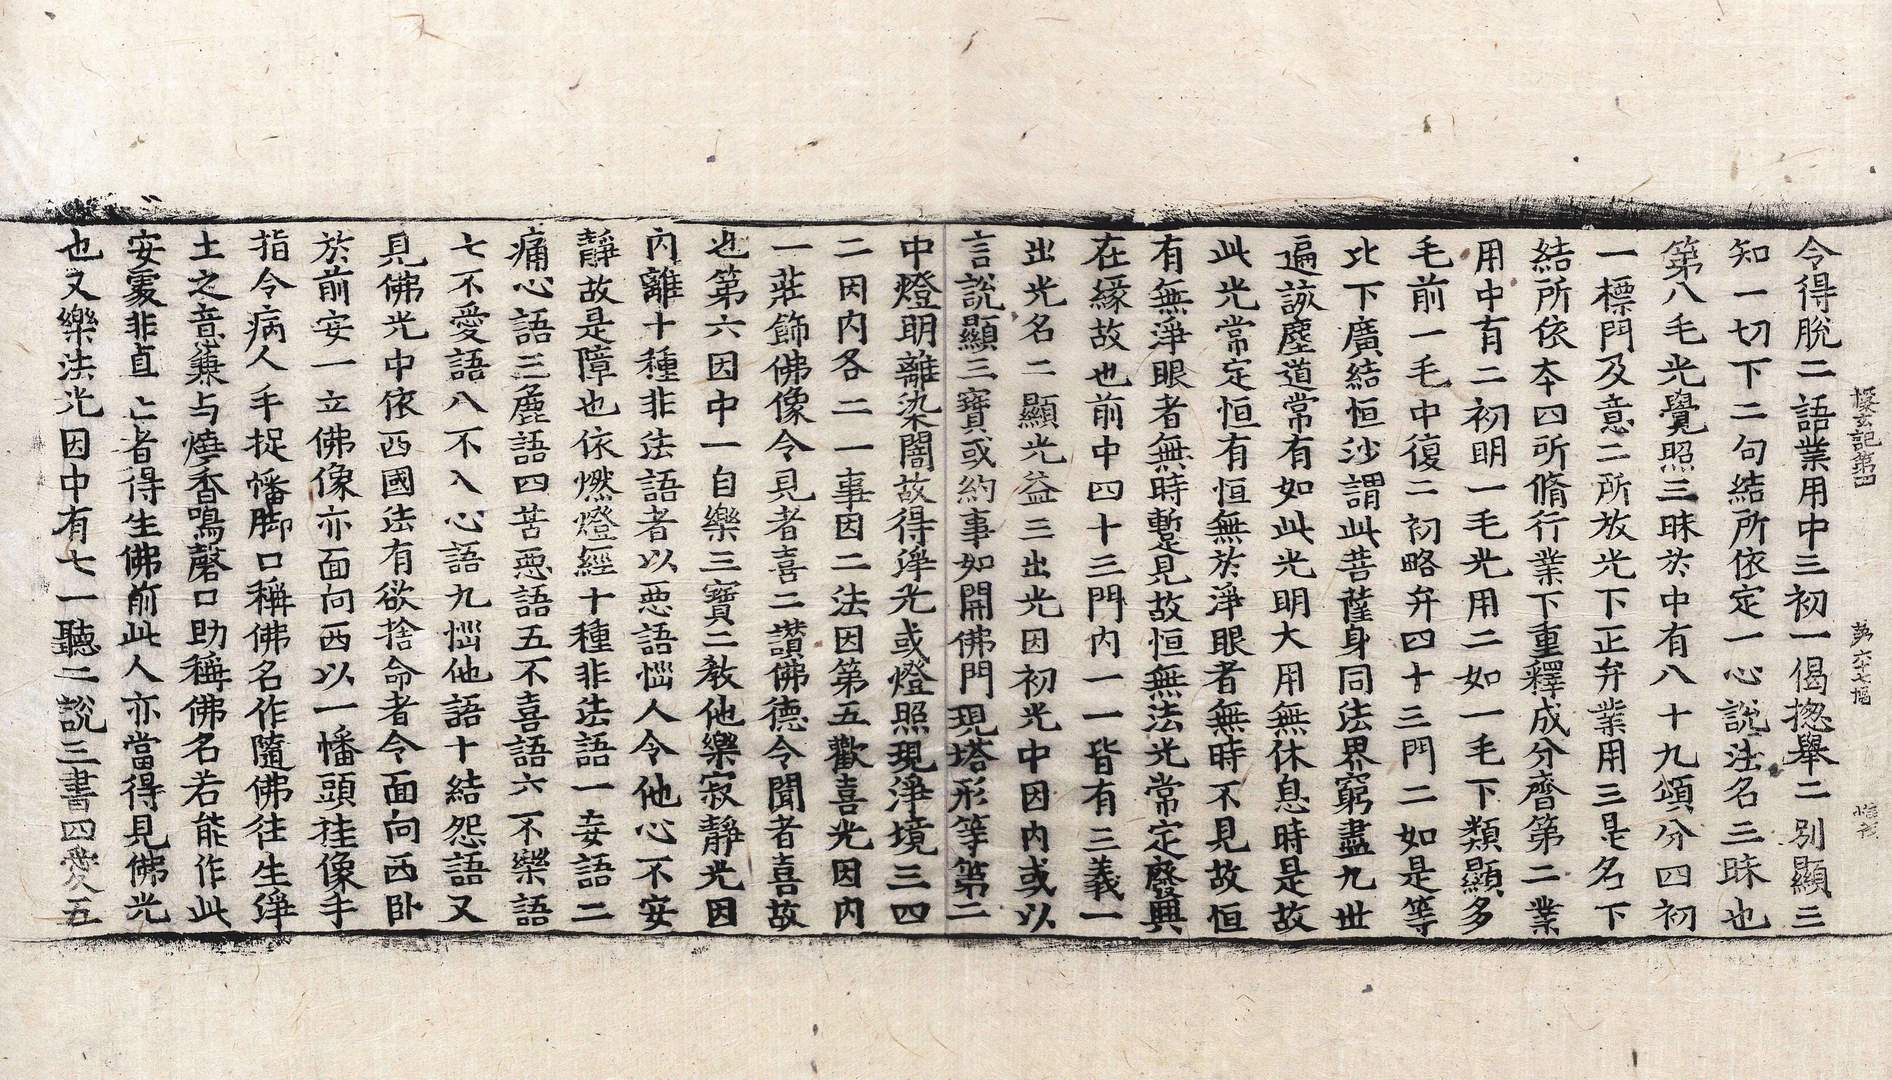 探玄記第四 第六十七幅
令得脫二語業用中三初一偈揔舉二別顯三
知一切下二句結所依定一心說法名三昧也
第八毛光覺照三昧於中有八十九頌分四初
一標門及意二所放光下正弁業用三是名下
結所依本四所脩行業下重釋成分齊第二業
用中有二初明一毛光用二如一毛下類顯多
毛前一毛中復二初略弁四十三門二如是等
比下廣結恒沙謂此菩薩身同法界窮盡九世
遍該塵道常有如此光明大用無休息時是故
此光常定恒有恒無於淨眼者無時不見故恒
有無淨眼者無時暫見故恒無法光常定廢興
在緣故也前中四十三門內一一皆有三義一
出光名二顯光益三出光因初光中因內或以
言說顯三寶或約事如開佛門現塔形等第二
中燈明離染闇故得淨光或燈照現淨境三四
二因內各二一事因二法因第五歡喜光因內
一莊飾佛像令見者喜二讚佛德令聞者喜故
也第六因中一自樂三寶二教他樂寂靜光因
內離十種非法語者以惡語惱人令他心不安
靜故是障也依燃燈經十種非法語一妄語二
痛心語三麁語四苦惡語五不喜語六不樂語
七不愛語八不入心語九惱他語十結怨語又
見佛光中依西國法有欲捨命者令面向西卧
於前安一立佛像亦面向西以一幡頭挂像手
指令病人手捉幡脚口稱佛名作隨佛往生淨
土之意兼与燒香鳴磬口助稱佛名若能作此
安處非直亡者得生佛前此人亦當得見佛光
也又樂法光因中有七一聽二說三書四愛五